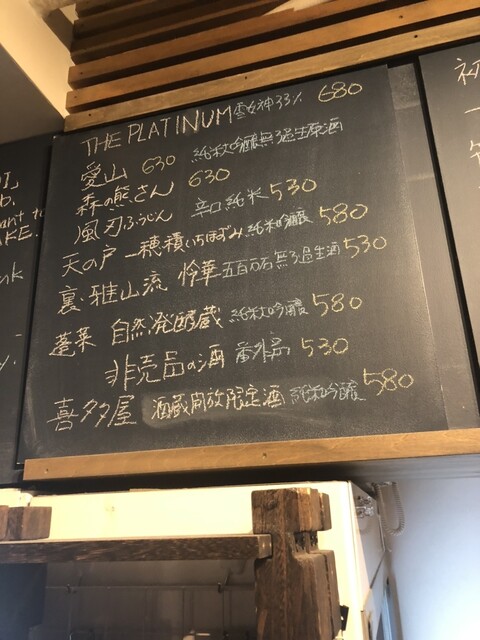 THE PLATINUM 雪女神 33% 680
愛山 630 純米吟醸無ろ過生原酒
森の熊さん 630
風刃ふうじん 辛口純米 530
天の戸 一穂積いちほずみ 純米吟醸 580
裏・雅山流 怜華 五百万石無ろ過生酒 530
蓬莱 自然発酵蔵 純米吟醸 580
非売品の酒 番外品 530
喜多屋 酒蔵開放限定酒 純米吟醸 580
初